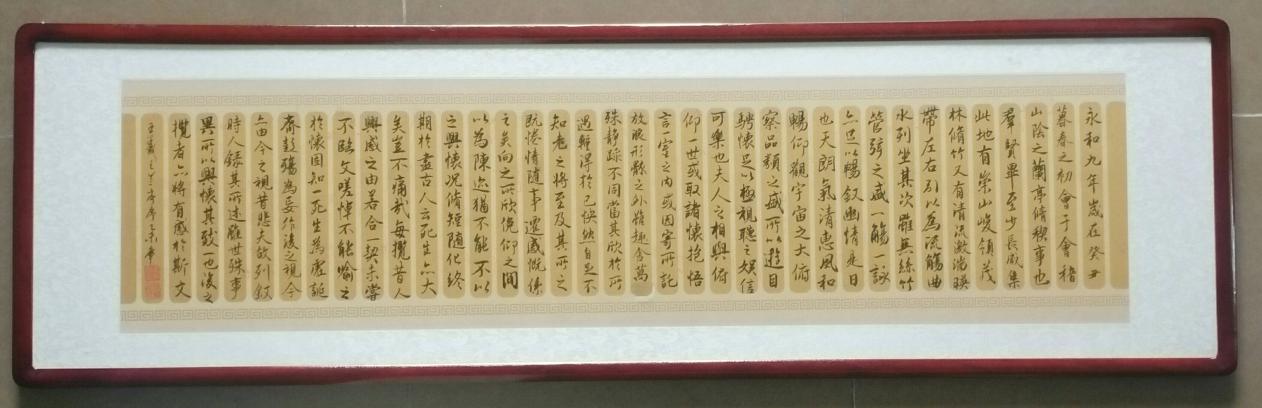 永和九年歲在癸丑
暮春之初會于會稽
山陰之蘭亭脩稧事也
羣賢畢至少長咸集
此地有崇山峻領茂
林脩竹又有清流激湍暎
帶左右引以為流觴曲
水列坐其次雖無絲竹
管弦之盛一觴一詠
亦足以暢叙幽情是日
也天朗氣清惠風和
暢仰觀宇宙之大俯
察品類之盛所以遊目
騁懷足以極視聽之娛信
可樂也夫人之相與俯
仰一世或取諸懷抱悟
言一室之內或因寄所託
放浪形骸之外雖趣舍萬
殊靜躁不同當其欣於所
遇暫得於己快然自足不
知老之將至及其所之
既惓情隨事遷感慨係
之矣向之所欣俛仰之間
以為陳迹猶不能不以
之興懷況脩短隨化終
期於盡古人云死生亦大
矣豈不痛哉每攬昔人
興感之由若合一契未嘗
不臨文嗟悼不能喻之
於懷固知一死生為虛誕
齊彭殤為妄作後之視今
亦由今之視昔悲夫故列叙
時人錄其所述雖世殊事
異所以興懷其致一也後之
攬者亦將有感於斯文
王羲之